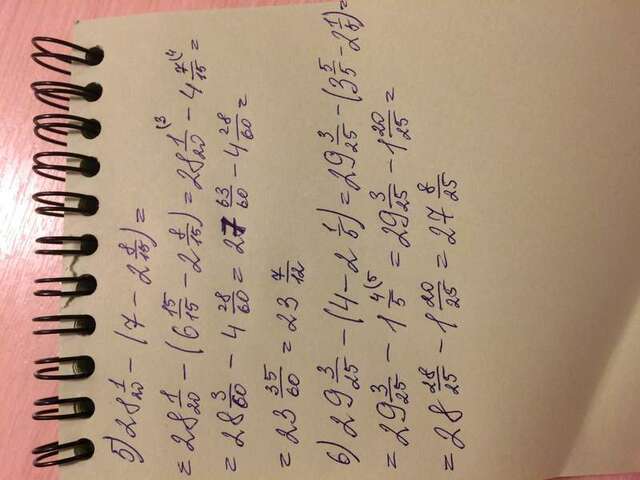 5) 28 1/20 - (7 - 2 8/15) =
= 28 1/20 - (6 15/15 - 2 8/15) = 28 1/20 (3 - 4 7/15 (4 =
= 28 3/60 - 4 28/60 = 27 63/60 - 4 28/60 =
= 23 35/60 = 23 7/12
6) 29 3/25 - (4 - 2 1/5) = 29 3/25 - (3 5/5 - 2 1/5) =
= 29 3/25 - 1 4/5 (5 = 29 3/25 - 1 20/25 =
= 28 28/25 - 1 20/25 = 27 8/25